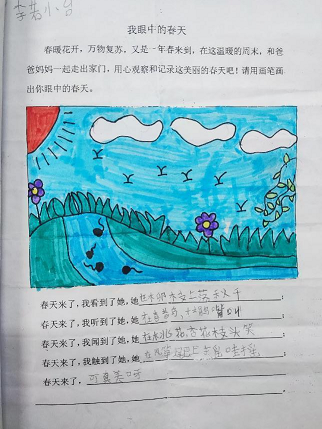 我眼中的春天
春暖花开，万物复苏，又是一年春来到，在这温暖的周末，和爸
爸妈妈一起走出家门，用心观察和记录这美丽的春天吧！请用画笔画
出你眼中的春天。
春天来了，我看到了她，她在柳条上荡秋千；
春天来了，我听到了她，她
春天来了，我闻到了她，她在桃花杏花枝头笑；
春天来了，我触到了她，她在
春天来了，可真美呀